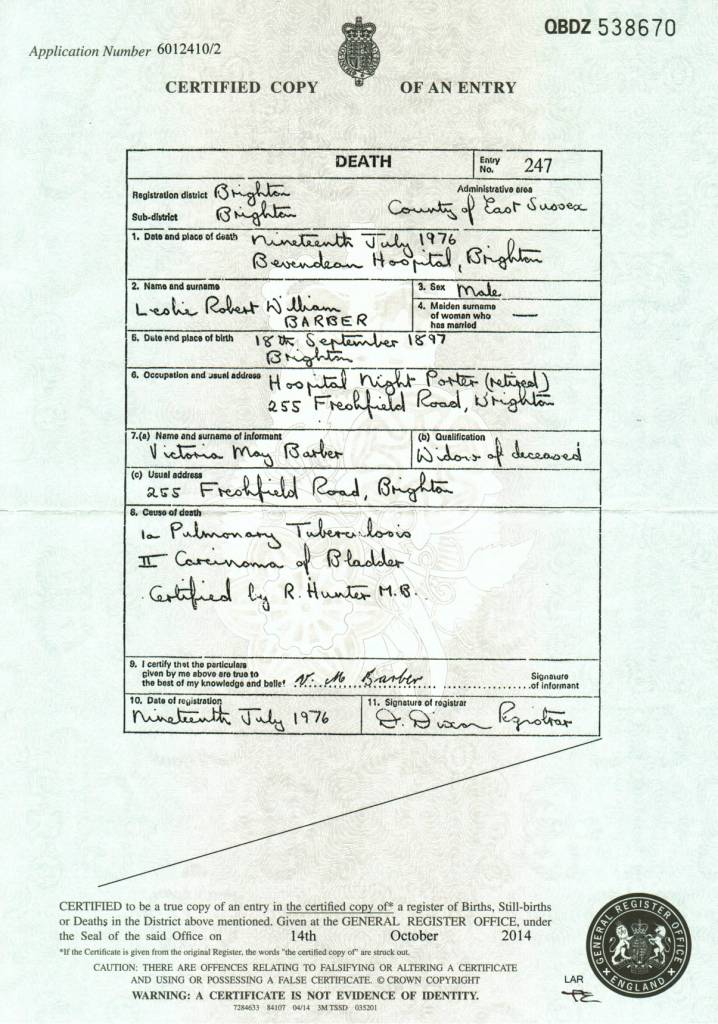 QBDZ 538670
Application Number 6012410/2
CERTIFIED COPY OF AN ENTRY
DEATH Entry No. 247
Registration district Brighton Administrative area
Sub-district Brighton County of East Sussex
1. Date and place of death Nineteenth July 1976
Bevendean Hospital, Brighton
2. Name and surname 3. Sex Male
Leslie Robert William
BARBER
4. Maiden surname
of woman who
has married —
5. Date and place of birth 18th September 1897
Brighton
6. Occupation and usual address Hospital Night Porter (retired)
255 Freshfield Road, Brighton
7.(a) Name and surname of informant (b) Qualification
Victoria May Barber Widow of deceased
(c) Usual address
255 Freshfield Road, Brighton
8. Cause of death
1a Pulmonary Tuberculosis
II Carcinoma of Bladder
Certified by R. Hunter M.B.
9. I certify that the particulars
given by me above are true to
the best of my knowledge and belief V. M Barber Signature
of informant
10. Date of registration 11. Signature of registrar
Nineteenth July 1976 D. Dixon Registrar
CERTIFIED to be a true copy of an entry in the certified copy of* a register of Births, Still-births
or Deaths in the District above mentioned. Given at the GENERAL REGISTER OFFICE, under
the Seal of the said Office on 14th October 2014
*If the Certificate is given from the original Register, the words "the certified copy of" are struck out.
CAUTION: THERE ARE OFFENCES RELATING TO FALSIFYING OR ALTERING A CERTIFICATE
AND USING OR POSSESSING A FALSE CERTIFICATE. © CROWN COPYRIGHT
WARNING: A CERTIFICATE IS NOT EVIDENCE OF IDENTITY.
7284633 84107 04/14 3MTSSD 035201
LAR
GENERAL REGISTER OFFICE
ENGLAND